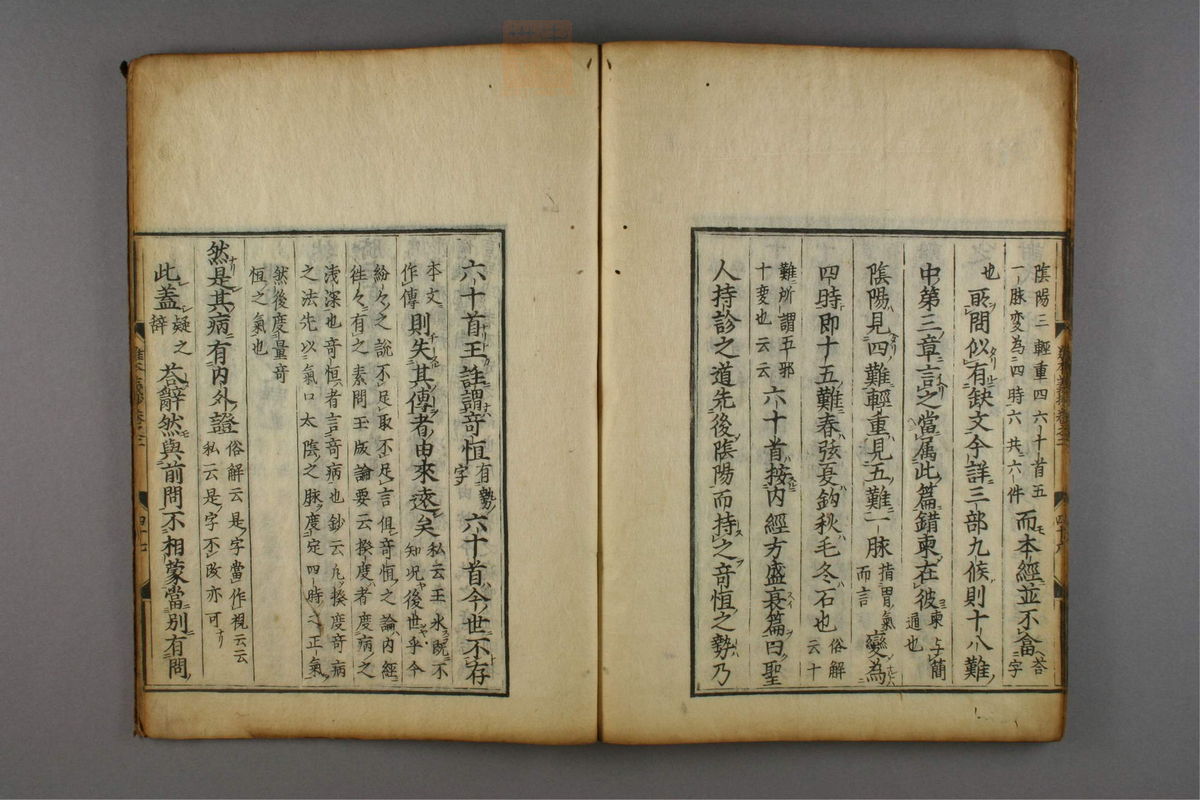 陰陽三輕重四六十首五
一脉変為四時六共六件
而本經並不畣
荅
字
也
所問似有缺文今詳三部九候則十八難
中第三章言之當属此篇錯柬在彼
柬与簡
通也
陰陽見四難輕重見五難一脉
指胃氣
而言
變為
四時即十五難春弦夏鈎秋毛冬石也
俗解
云十
難所謂五邪
十変也云云
六十首按内經方盛衰篇曰聖
人持診之道先後陰陽而持之竒恒之勢乃
六十首王註謂竒恒
有勢
字
六十首今世不存
本文
作傳
則失其傳者由來遠矣
私云王氷既不
知况後世乎今
紛々之説不足取不足言俱竒恒之論内經
徃々有之素問玉版論要云揆度者度病之
浅深也竒恒者言竒病也鈔云凢揆度竒病
之法先以氣口太陰之脉度定四時之正氣
然後度量竒
恒之氣也
然是其病有内外證
俗解云是字當作視云云
私云是字不改亦可
此蓋
疑之
辞
荅辭然與前問不相蒙當別有問